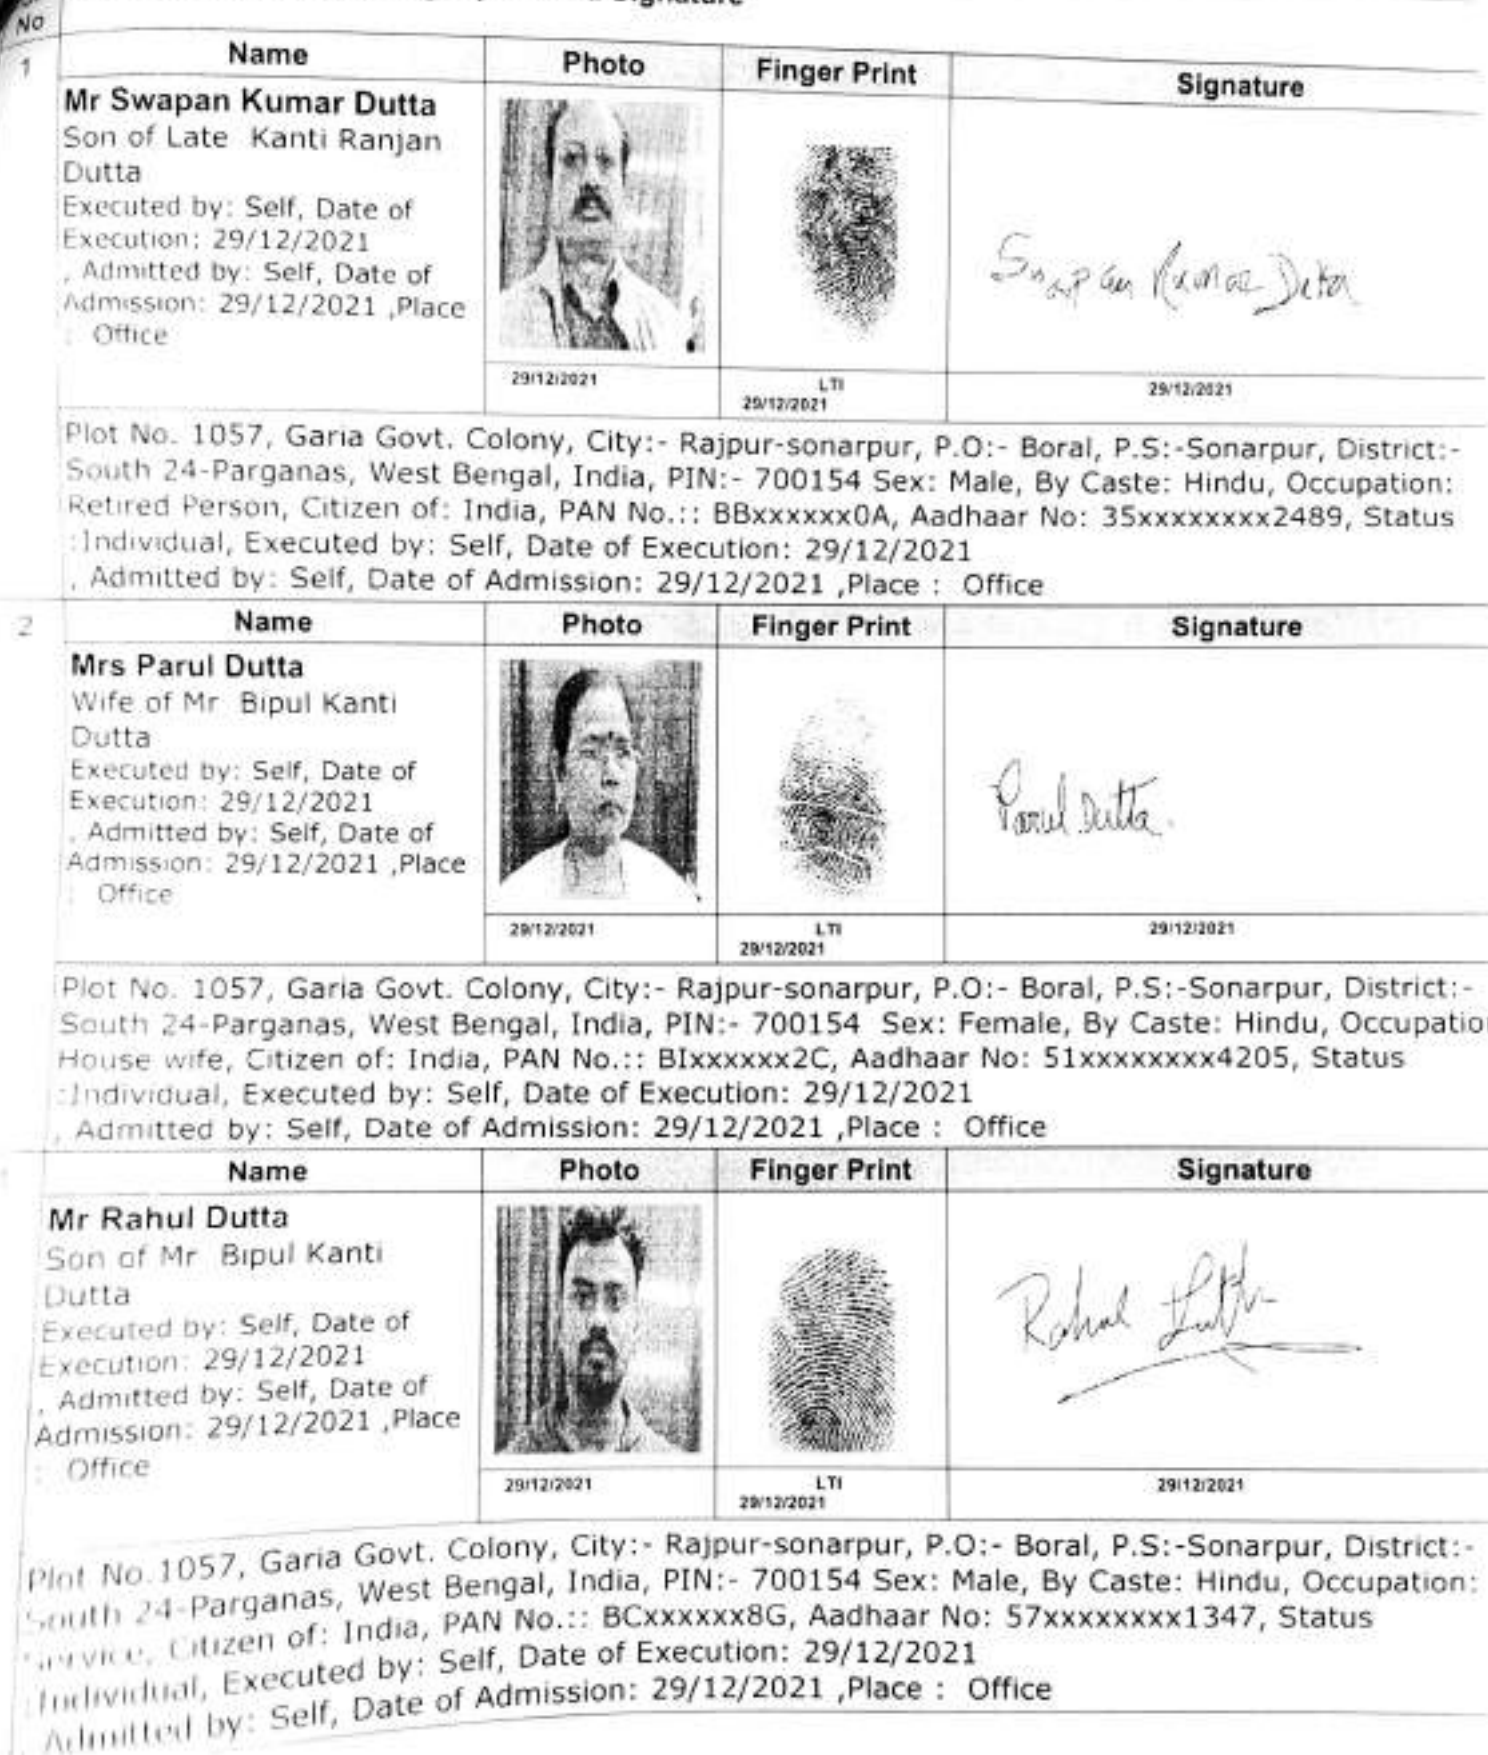 No
Signature
1
Name
Photo
Finger Print
Signature
Mr Swapan Kumar Dutta
Son of Late Kanti Ranjan
Dutta
Executed by: Self, Date of
Execution: 29/12/2021
, Admitted by: Self, Date of
Admission: 29/12/2021 ,Place
: Office
Swapan Kumar Dutta
29/12/2021
LTI
29/12/2021
29/12/2021
Plot No. 1057, Garia Govt. Colony, City:- Rajpur-sonarpur, P.O:- Boral, P.S:-Sonarpur, District:-
South 24-Parganas, West Bengal, India, PIN:- 700154 Sex: Male, By Caste: Hindu, Occupation:
Retired Person, Citizen of: India, PAN No.:: BBxxxxxx0A, Aadhaar No: 35xxxxxxxx2489, Status
:Individual, Executed by: Self, Date of Execution: 29/12/2021
, Admitted by: Self, Date of Admission: 29/12/2021 ,Place : Office
2
Name
Photo
Finger Print
Signature
Mrs Parul Dutta
Wife of Mr Bipul Kanti
Dutta
Executed by: Self, Date of
Execution: 29/12/2021
, Admitted by: Self, Date of
Admission: 29/12/2021 ,Place
: Office
Parul Dutta.
29/12/2021
LTI
29/12/2021
29/12/2021
Plot No. 1057, Garia Govt. Colony, City:- Rajpur-sonarpur, P.O:- Boral, P.S:-Sonarpur, District:-
South 24-Parganas, West Bengal, India, PIN:- 700154 Sex: Female, By Caste: Hindu, Occupatio
House wife, Citizen of: India, PAN No.:: BIxxxxxx2C, Aadhaar No: 51xxxxxxxx4205, Status
:Individual, Executed by: Self, Date of Execution: 29/12/2021
, Admitted by: Self, Date of Admission: 29/12/2021 ,Place : Office
Name
Photo
Finger Print
Signature
Mr Rahul Dutta
Son of Mr Bipul Kanti
Dutta
Executed by: Self, Date of
Execution: 29/12/2021
, Admitted by: Self, Date of
Admission: 29/12/2021 ,Place
: Office
Rahul Dutta
29/12/2021
LTI
29/12/2021
29/12/2021
Plot No.1057, Garia Govt. Colony, City:- Rajpur-sonarpur, P.O:- Boral, P.S:-Sonarpur, District:-
South 24-Parganas, West Bengal, India, PIN:- 700154 Sex: Male, By Caste: Hindu, Occupation:
Service, Citizen of: India, PAN No.:: BCxxxxxx8G, Aadhaar No: 57xxxxxxxx1347, Status
:Individual, Executed by: Self, Date of Execution: 29/12/2021
Admitted by: Self, Date of Admission: 29/12/2021 ,Place : Office